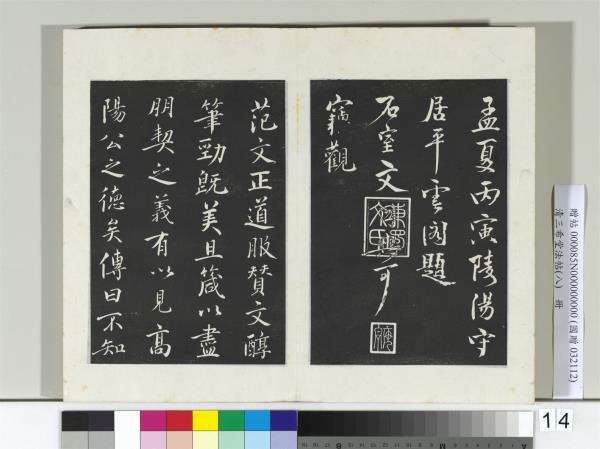 孟夏丙寅陵陽守
居平雲閣題
石室文
與可
寘觀
范文正道服贊文醇
筆勁既美且箴以盡
朋契之義有以見高
陽公之德矣傳曰不知
贈帖 000085N000000000 (國贈 032112)
清三希堂法帖(八) 冊
14